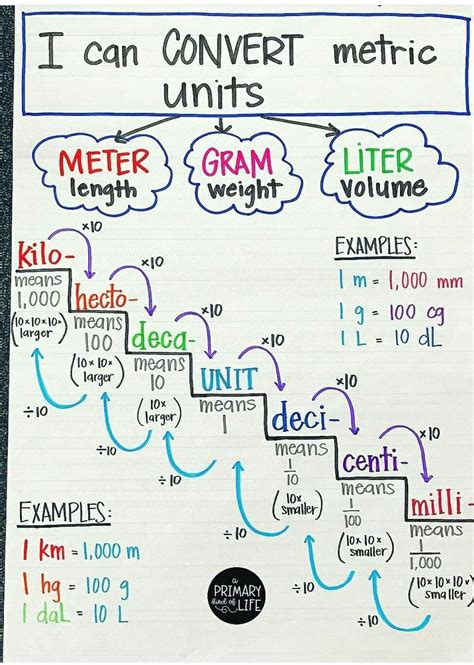 I can CONVERT metric
units
METER
length
GRAM
weight
LITER
volume
kilo-
means
1,000
(10×10×10×
larger)
×10
hecto-
means
100
(10×10×
larger)
×10
deca-
means
10
(10×
larger)
×10
UNIT
means
1
×10
deci-
means
1
10
(10×
smaller)
×10
centi-
means
1
100
(10×10×
smaller)
×10
milli-
means
1
1,000
(10×10×10×
smaller)
÷10
÷10
÷10
÷10
÷10
÷10
EXAMPLES:
1 m = 1,000 mm
1 g = 100 cg
1 L = 10 dL
EXAMPLES:
1 km = 1,000 m
1 hg = 100 g
1 daL = 10 L
a
PRIMARY
kind of LIFE